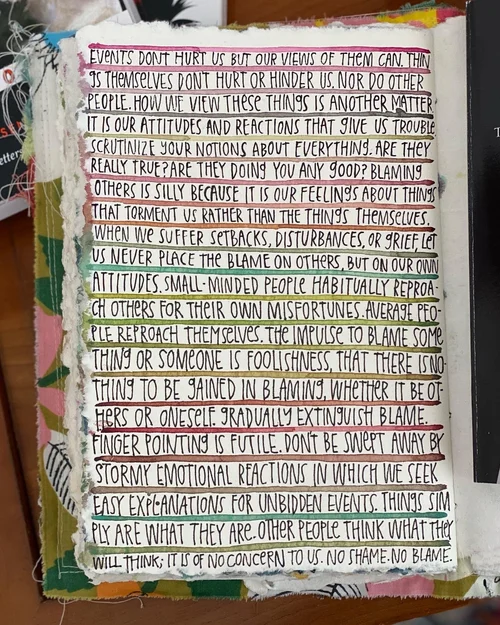 EVENTS DON'T HURT US BUT OUR VIEWS OF THEM CAN. THIN
GS THEMSELVES DON'T HURT OR HINDER US. NOR DO OTHER
PEOPLE. HOW WE VIEW THESE THINGS IS ANOTHER MATTER
IT IS OUR ATTITUDES AND REACTIONS THAT GIVE US TROUBLE.
SCRUTINIZE YOUR NOTIONS ABOUT EVERYTHING. ARE THEY
REALLY TRUE? ARE THEY DOING YOU ANY GOOD? BLAMING
OTHERS IS SILLY BECAUSE IT IS OUR FEELINGS ABOUT THINGS
THAT TORMENT US RATHER THAN THE THINGS THEMSELVES.
WHEN WE SUFFER SETBACKS, DISTURBANCES, OR GRIEF, LET
US NEVER PLACE THE BLAME ON OTHERS, BUT ON OUR OWN
ATTITUDES. SMALL-MINDED PEOPLE HABITUALLY REPROA-
CH OTHERS FOR THEIR OWN MISFORTUNES. AVERAGE PEO-
PLE REPROACH THEMSELVES. THE IMPULSE TO BLAME SOME
THING OR SOMEONE IS FOOLISHNESS, THAT THERE IS NO-
THING TO BE GAINED IN BLAMING, WHETHER IT BE OT-
HERS OR ONESELF. GRADUALLY EXTINGUISH BLAME.
FINGER POINTING IS FUTILE. DON'T BE SWEPT AWAY BY
STORMY EMOTIONAL REACTIONS IN WHICH WE SEEK
EASY EXPLANATIONS FOR UNBIDDEN EVENTS. THINGS SIM
PLY ARE WHAT THEY ARE. OTHER PEOPLE THINK WHAT THEY
WILL THINK; IT IS OF NO CONCERN TO US. NO SHAME. NO BLAME.